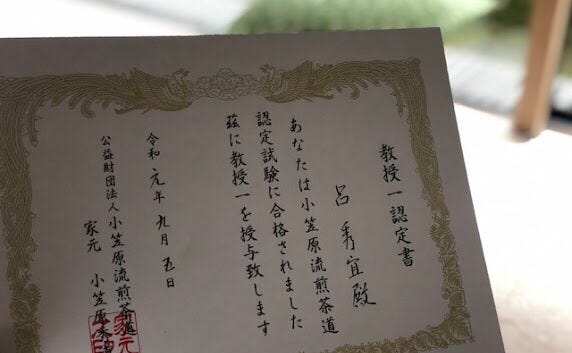 教授一認定書
呂秀宜殿
あなたは小笠原流煎茶道
認定試験に合格されました
茲に教授一を授与致します
令和元年九月五日
公益財団法人小笠原流煎茶道
家元 小笠原秀